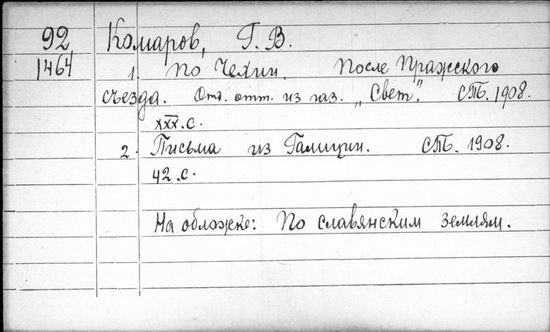 92 Комаров, Г. В.
1464 1. По Чехии. После Пражского
съезда. Отд. отт. из газ. „Свет". СПб. 1908.
XXX. с.
2. Письма из Галиции. СПб. 1908.
42. с.
На обложке: По славянским землям.